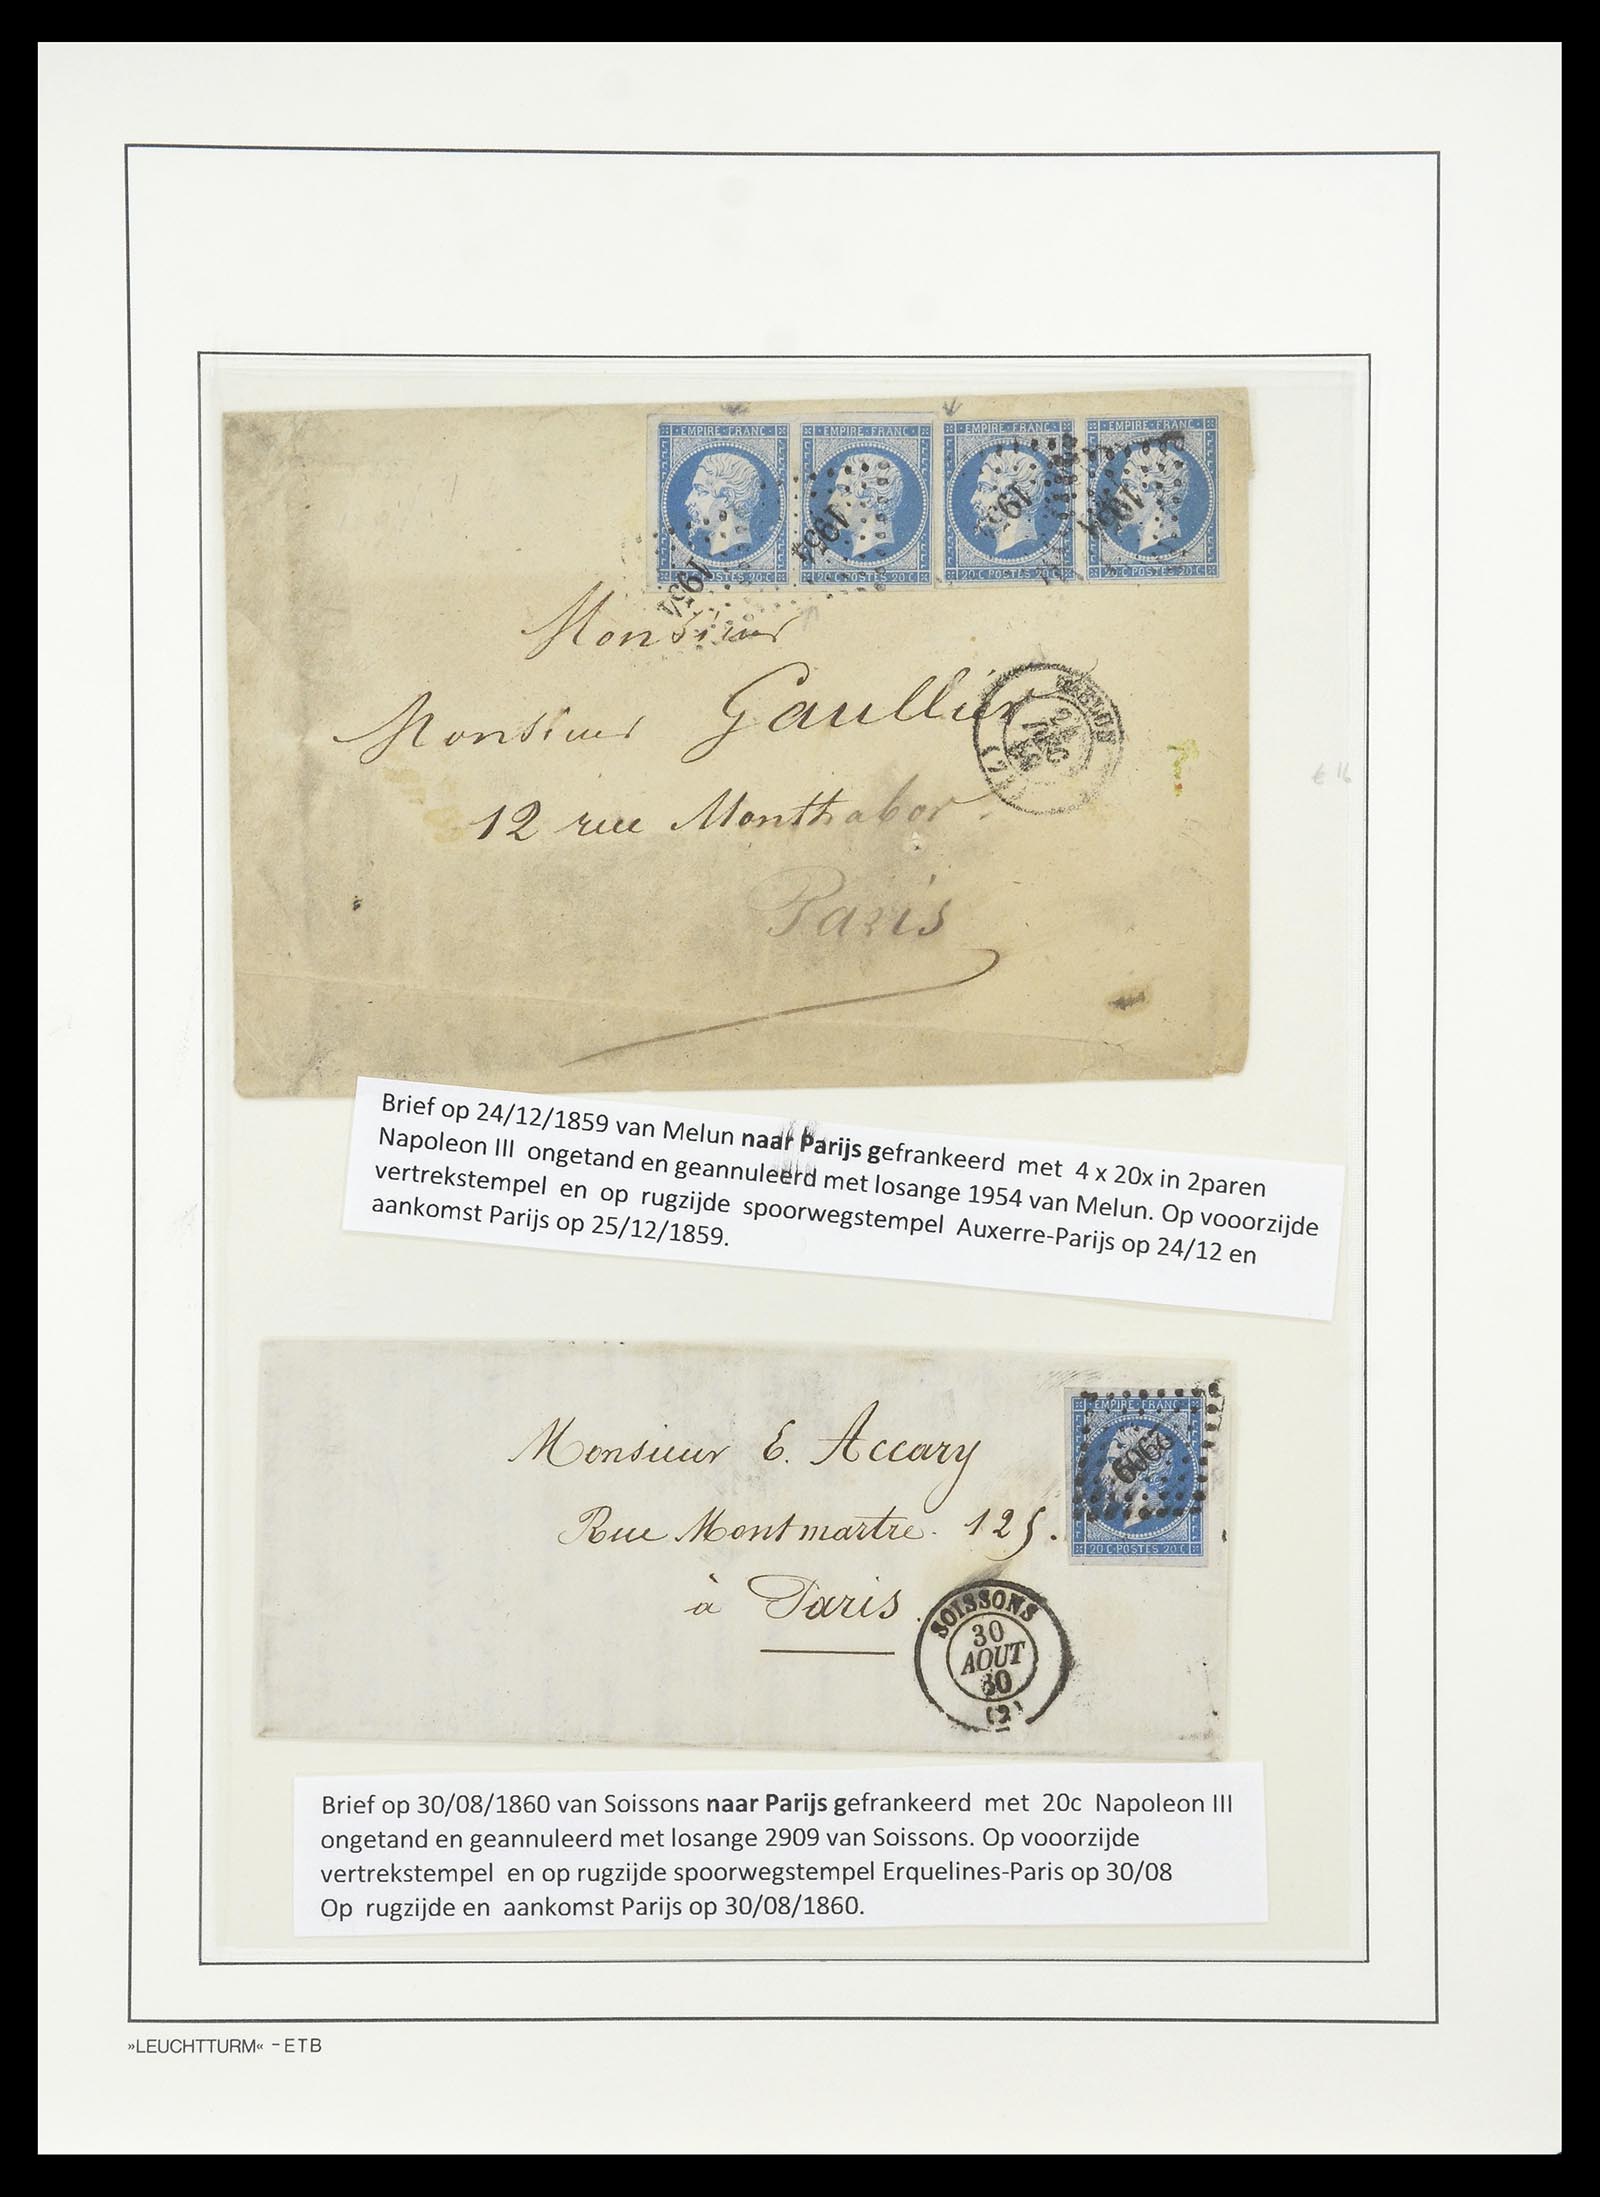 EMPIRE FRANC EMPIRE FRANC EMPIRE FRANC EMPIRE FRANC
1954 1954 1954 1954
POSTES 20 C 20 C POSTES 20 C 20 C POSTES 20 20 C POSTES 20 C
Monsieur
Monsieur Gaullier
MELUN
12 rue Monthabor
Paris
€ 16
Brief op 24/12/1859 van Melun naar Parijs gefrankeerd met 4 x 20x in 2paren
Napoleon III ongetand en geannuleerd met losange 1954 van Melun. Op vooorzijde
vertrekstempel en op rugzijde spoorwegstempel Auxerre-Parijs op 24/12 en
aankomst Parijs op 25/12/1859.
EMPIRE FRANC
2909
20 C POSTES 20 C
Monsieur E. Accary
Rue Montmartre. 125.
à Paris.
SOISSONS
30
AOUT
60
(2)
Brief op 30/08/1860 van Soissons naar Parijs gefrankeerd met 20c Napoleon III
ongetand en geannuleerd met losange 2909 van Soissons. Op vooorzijde
vertrekstempel en op rugzijde spoorwegstempel Erquelines-Paris op 30/08
Op rugzijde en aankomst Parijs op 30/08/1860.
»LEUCHTTURM« - ETB